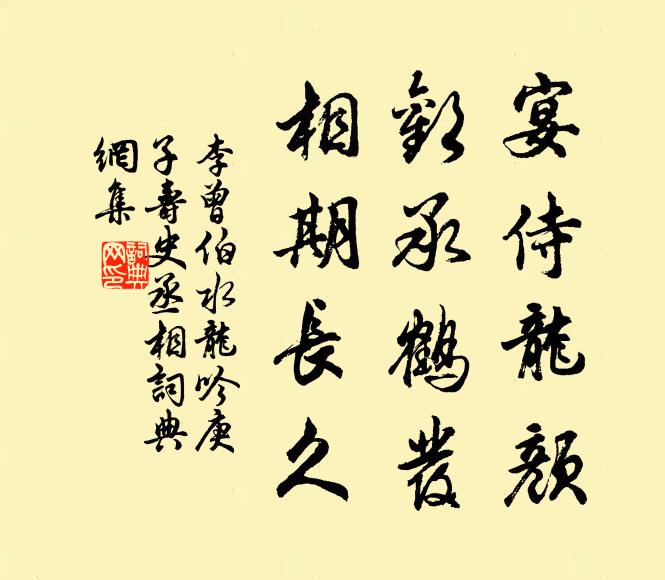 宴侍龍顔
歡承鶴發
相期長久
李曾伯水龍吟庚
子壽史丞相詞典
網集
詞典
网印